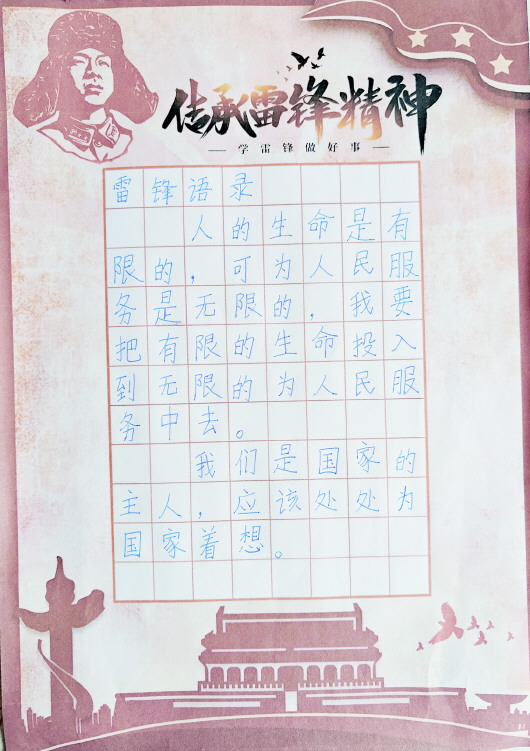 传承雷锋精神
学雷锋做好事
雷锋语录
人的生命是有
限的，可为人民服
务是无限的，我要
把有限的生命投入
到无限的为人民服
务中去。
我们是国家的
主人，应该处处为
国家着想。